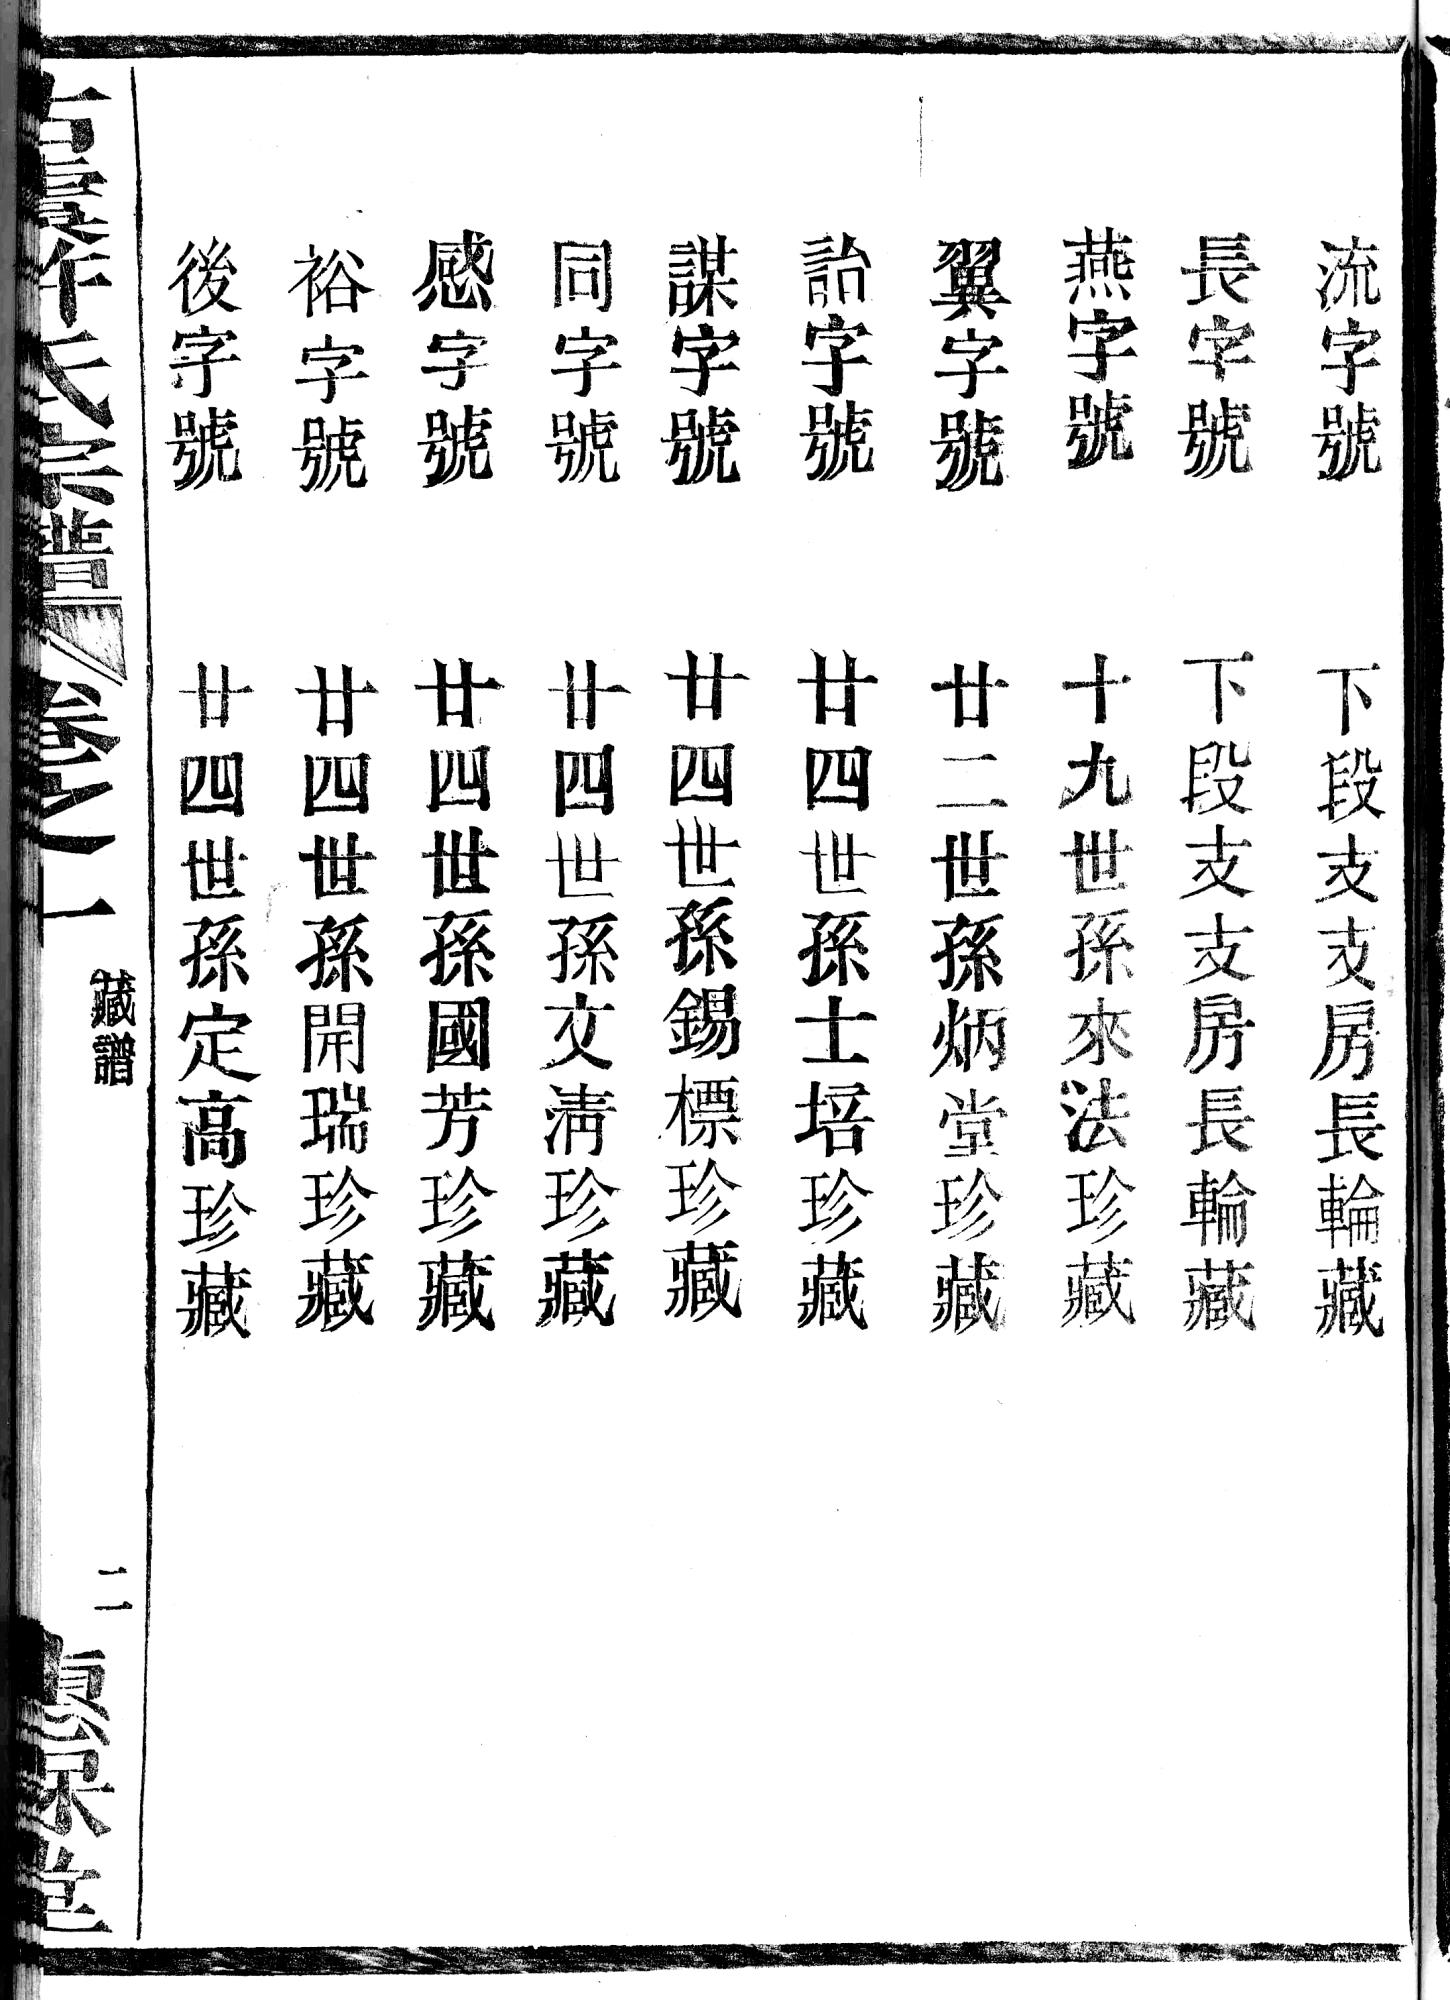 流字號 下段支支房長輪藏
長字號 下段支支房長輪藏
燕字號 十九世孫來法珍藏
翼字號 廿二世孫炳堂珍藏
詒字號 廿四世孫士培珍藏
謀字號 廿四世孫錫標珍藏
同字號 廿四世孫文淸珍藏
感字號 廿四世孫國芳珍藏
裕字號 廿四世孫開瑞珍藏
後字號 廿四世孫定高珍藏
氏宗譜 卷之一 藏譜 二 堂